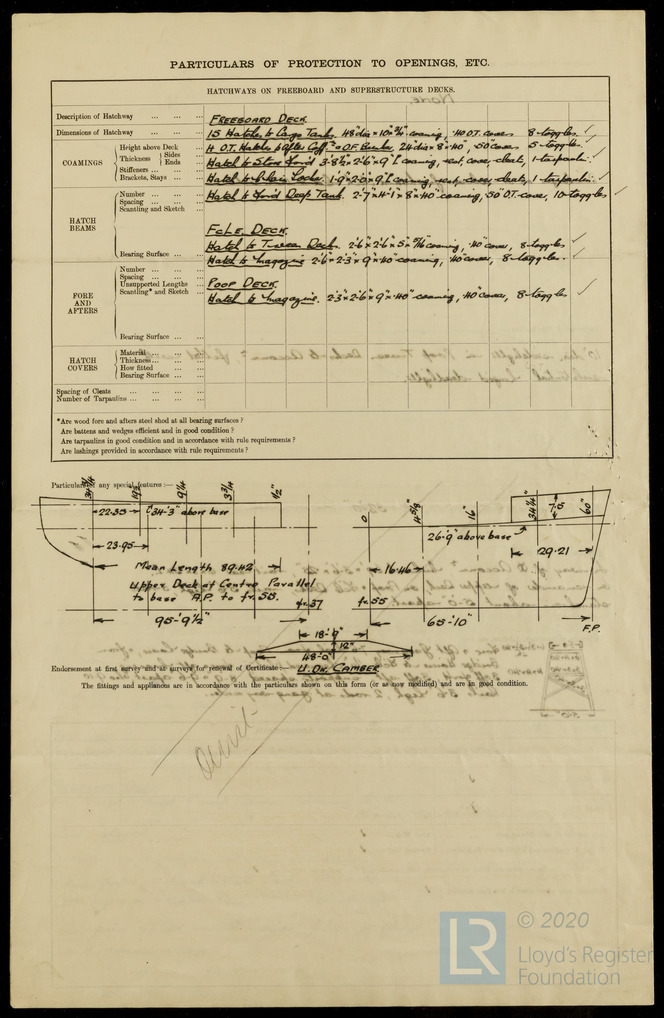 PARTICULARS OF PROTECTION TO OPENINGS, ETC.
HATCHWAYS ON FREEBOARD AND SUPERSTRUCTURE DECKS.
Description of Hatchway ... ... ... FREEBOARD DECK.
Dimensions of Hatchway ... ... ... 15 Hatches to Cargo Tanks. 48" dia × 10" × 3/4" coaming, .40 O.T. covers 8 toggles. ✓
COAMINGS
Height above Deck
Thickness { Sides
Ends
Stiffeners ... ...
Brackets, Stays ...
4 O.T. Hatches to After Coff. & O.F. Bunks, 24" dia × 8" × .40", .50" covers 5 toggles.
Hatch to Store For'd 3'-8½" × 2'-6" × 9" coaming, cover, cleats, 1 tarpaulin.
Hatch to Chain Locker. 1'-9" × 2'-0" × 9" coaming, cover, cleats, 1 tarpaulin.
HATCH BEAMS
Number ... ... ... Hatch to For'd Deep Tank. 2'-7" × 4'-1" × 8" × .40" coaming, .50" O.T. cover, 10 toggles ✓
Spacing ... ... ...
Scantling and Sketch
FCLE. DECK.
Hatch to Tween Deck. 2'-6" × 2'-6" × 5" × 7/16" coaming, .40" cover, 8 toggles ✓
Bearing Surface ... ... Hatch to magazine 2'-6" × 2'-3" × 9" × .40" coaming, .40" cover, 8 toggles. ✓
FORE AND AFTERS
Number ... ... ...
Spacing ... ... ...
Unsupported Lengths
Scantling* and Sketch
POOP DECK.
Hatch to magazine. 2'-3" × 2'-6" × 9" × .40" coaming, .40" cover, 8 toggles ✓
Bearing Surface ... ...
HATCH COVERS
Material ... ... ...
Thickness ... ... ...
How fitted ... ...
Bearing Surface ... ...
Spacing of Cleats ... ... ... ...
Number of Tarpaulins ... ... ... ...
*Are wood fore and afters steel shod at all bearing surfaces ?
Are battens and wedges efficient and in good condition ?
Are tarpaulins in good condition and in accordance with rule requirements ?
Are lashings provided in accordance with rule requirements ?
Particulars of any special features :—
34¾"
19½"
9¼"
3¾"
½"
0
4⅝"
16"
34¼"
7'-9"
60"
22.35
34'-3" above base
26'-9" above base
23.95
29.21
Mean Length 89.42
16.46
Upper Deck at Centre Parallel
to base A.P. to fr. 55.
fr. 37
fr. 55
95'-9½"
65'-10"
F.P.
18'-9"
12"
48'-0"
U. DK. CAMBER
Endorsement at first survey and at surveys for renewal of Certificate:—
The fittings and appliances are in accordance with the particulars shown on this form (or as now modified) and are in good condition.
omit
LR
© 2020
Lloyd's Register
Foundation